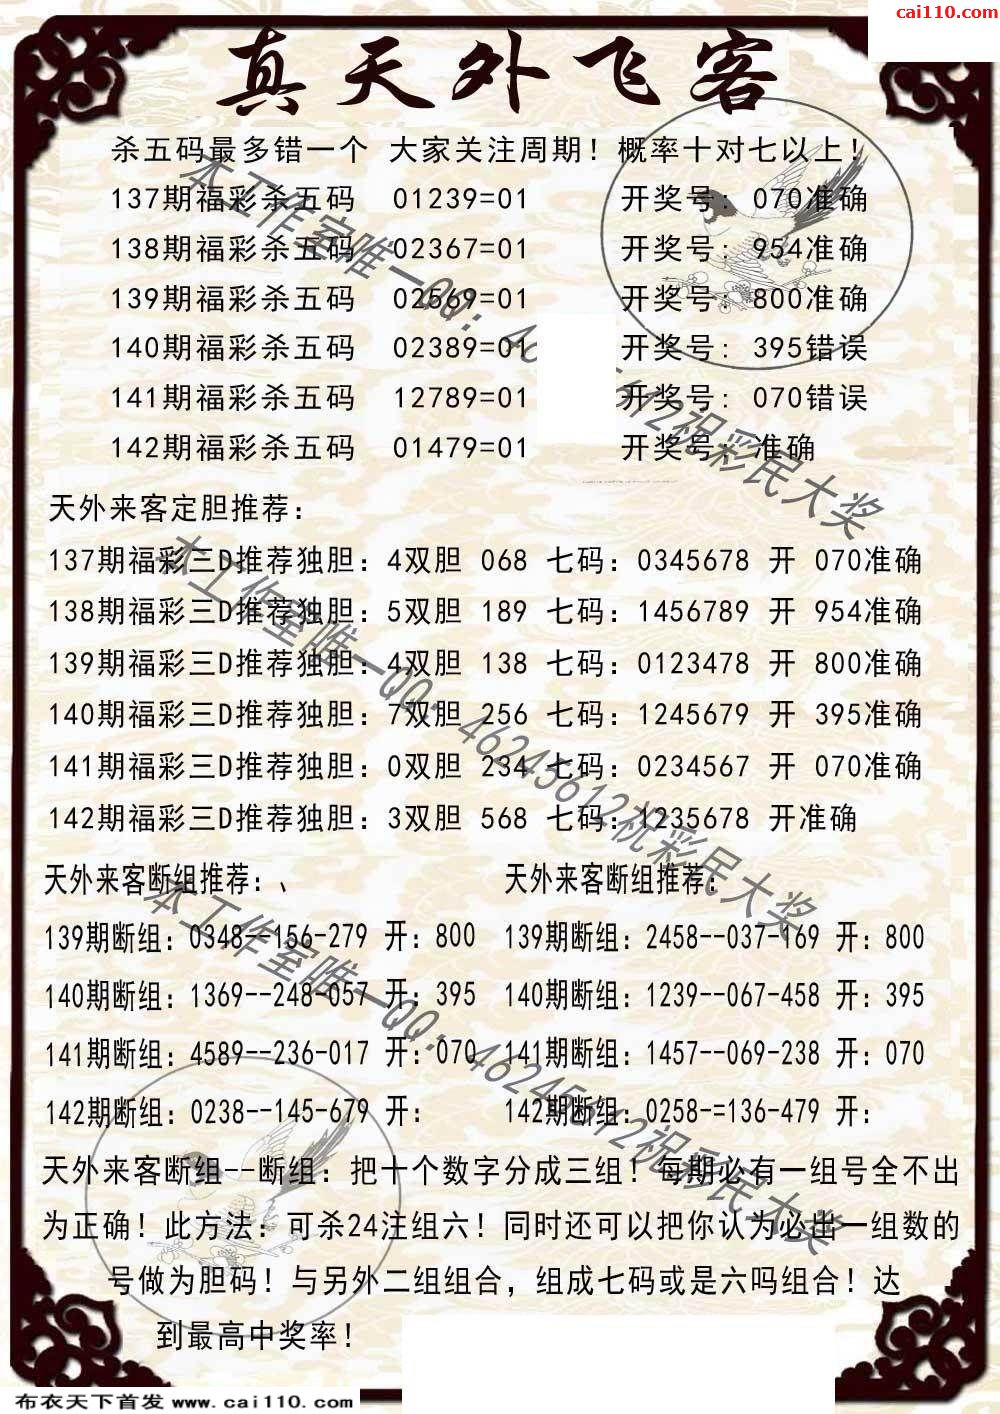 cai110.com
真天外飞客
杀五码最多错一个 大家关注周期！概率十对七以上！
137期福彩杀五码 01239=01 开奖号: 070准确
138期福彩杀五码 02367=01 开奖号: 954准确
139期福彩杀五码 02569=01 开奖号: 800准确
140期福彩杀五码 02389=01 开奖号: 395错误
141期福彩杀五码 12789=01 开奖号: 070错误
142期福彩杀五码 01479=01 开奖号: 准确
天外来客定胆推荐：
137期福彩三D推荐独胆：4双胆 068 七码：0345678 开 070准确
138期福彩三D推荐独胆：5双胆 189 七码：1456789 开 954准确
139期福彩三D推荐独胆：4双胆 138 七码：0123478 开 800准确
140期福彩三D推荐独胆：7双胆 256 七码：1245679 开 395准确
141期福彩三D推荐独胆：0双胆 234 七码：0234567 开 070准确
142期福彩三D推荐独胆：3双胆 568 七码：1235678 开准确
天外来客断组推荐：、 天外来客断组推荐：
139期断组：0348--156-279 开：800 139期断组：2458--037-169 开：800
140期断组：1369--248-057 开：395 140期断组：1239--067-458 开：395
141期断组：4589--236-017 开：070 141期断组：1457--069-238 开：070
142期断组：0238--145-679 开： 142期断组：0258-=136-479 开：
天外来客断组--断组：把十个数字分成三组！每期必有一组号全不出
为正确！此方法：可杀24注组六！同时还可以把你认为必出一组数的
号做为胆码！与另外二组组合，组成七码或是六吗组合！达
到最高中奖率！
本工作室唯一QQ：46245612祝彩民大奖
本工作室唯一QQ：46245612祝彩民大奖
本工作室唯一QQ：46245612祝彩民大奖
布衣天下首发 www.cai110.com